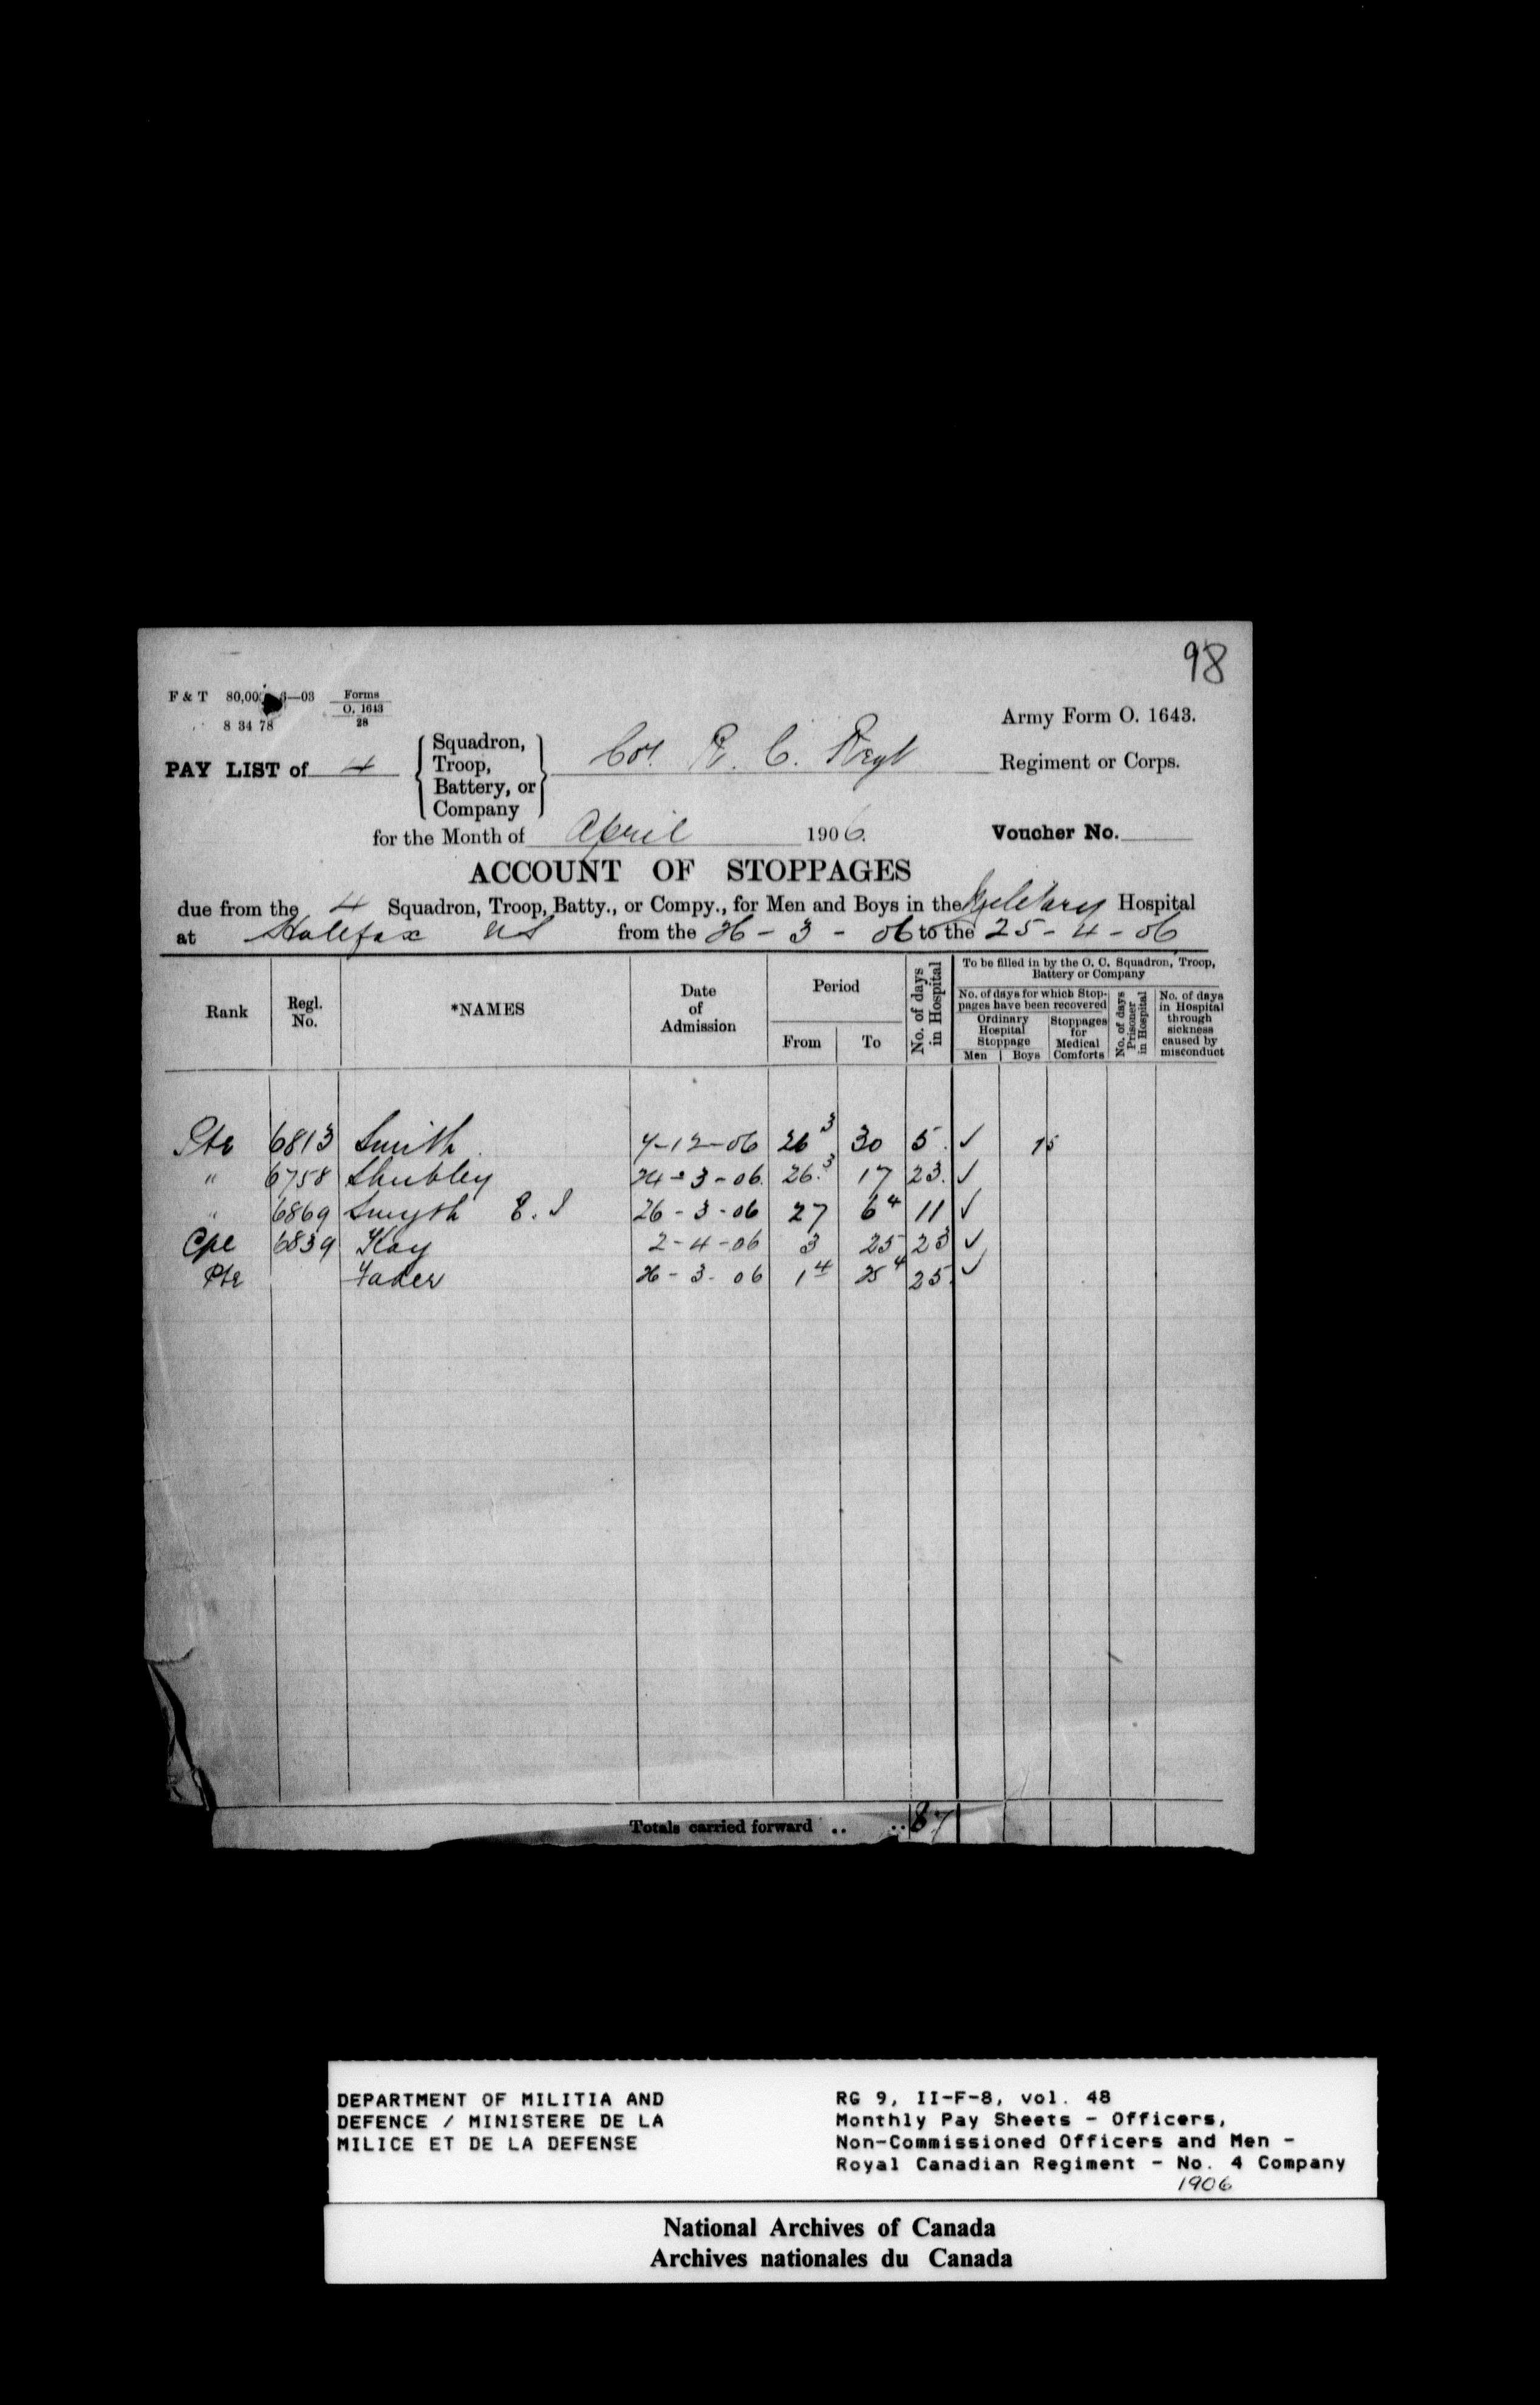 98
F & T 80,00 6—03 Forms
O. 1643
8 34 78 28
Army Form O. 1643.
PAY LIST of 4 Squadron, Troop, Battery, or Company Coy. R. C. Regt Regiment or Corps.
for the Month of April 1906. Voucher No.
ACCOUNT OF STOPPAGES
due from the 4 Squadron, Troop, Batty., or Compy., for Men and Boys in the Military Hospital
at Halifax NS from the 26 - 3 - 06 to the 25 - 4 - 06
To be filled in by the O. C. Squadron, Troop, Battery or Company
Rank Regl. No. *NAMES Date of Admission Period From To No. of days in Hospital
No. of days for which Stoppages have been recovered
Ordinary Hospital Stoppage Men Boys Stoppages for Medical Comforts
No. of days Prisoner in Hospital
No. of days in Hospital through sickness caused by misconduct
Pte 6813 Smith 26 3 30 5 ✓ 15
" 6758 Shubley 24 - 3 - 06. 26.3 17 23. ✓
" 6869 Smyth 26 - 3 - 06 27 6 4 11 ✓
Cpl 6839 Kay 2 - 4 - 06 3 25 23 ✓
Pte 26 - 3 - 06 1 4 25 4 25. ✓
Totals carried forward .. .. 87
DEPARTMENT OF MILITIA AND
DEFENCE / MINISTERE DE LA
MILICE ET DE LA DEFENSE
RG 9, II-F-8, vol. 48
Monthly Pay Sheets - Officers,
Non-Commissioned Officers and Men -
Royal Canadian Regiment - No. 4 Company
1906
National Archives of Canada
Archives nationales du Canada